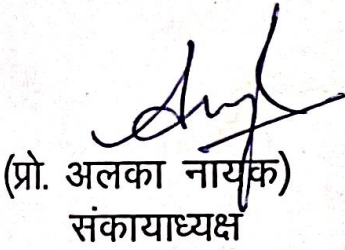 (प्रो. अलका नायक)
संकायाध्यक्ष